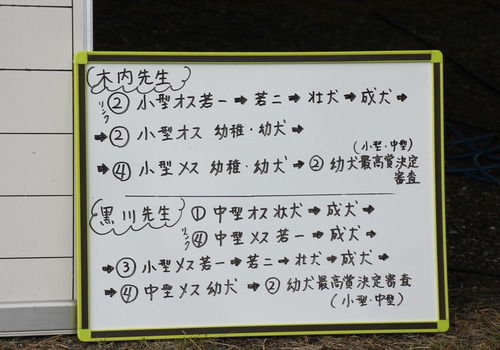 木内先生
リンク② 小型オス若一➡若二➡壮犬➡成犬➡
➡② 小型オス 幼稚・幼犬➡
(小型・中型)
➡④ 小型メス 幼稚・幼犬➡② 幼犬最高賞決定
審査
黒川先生 ① 中型オス壮犬➡成犬➡
リンク④ 中型メス若一➡成犬➡
➡③ 小型メス若一➡若二➡壮犬➡成犬➡
➡④ 中型メス幼犬➡② 幼犬最高賞決定審査
(小型・中型)